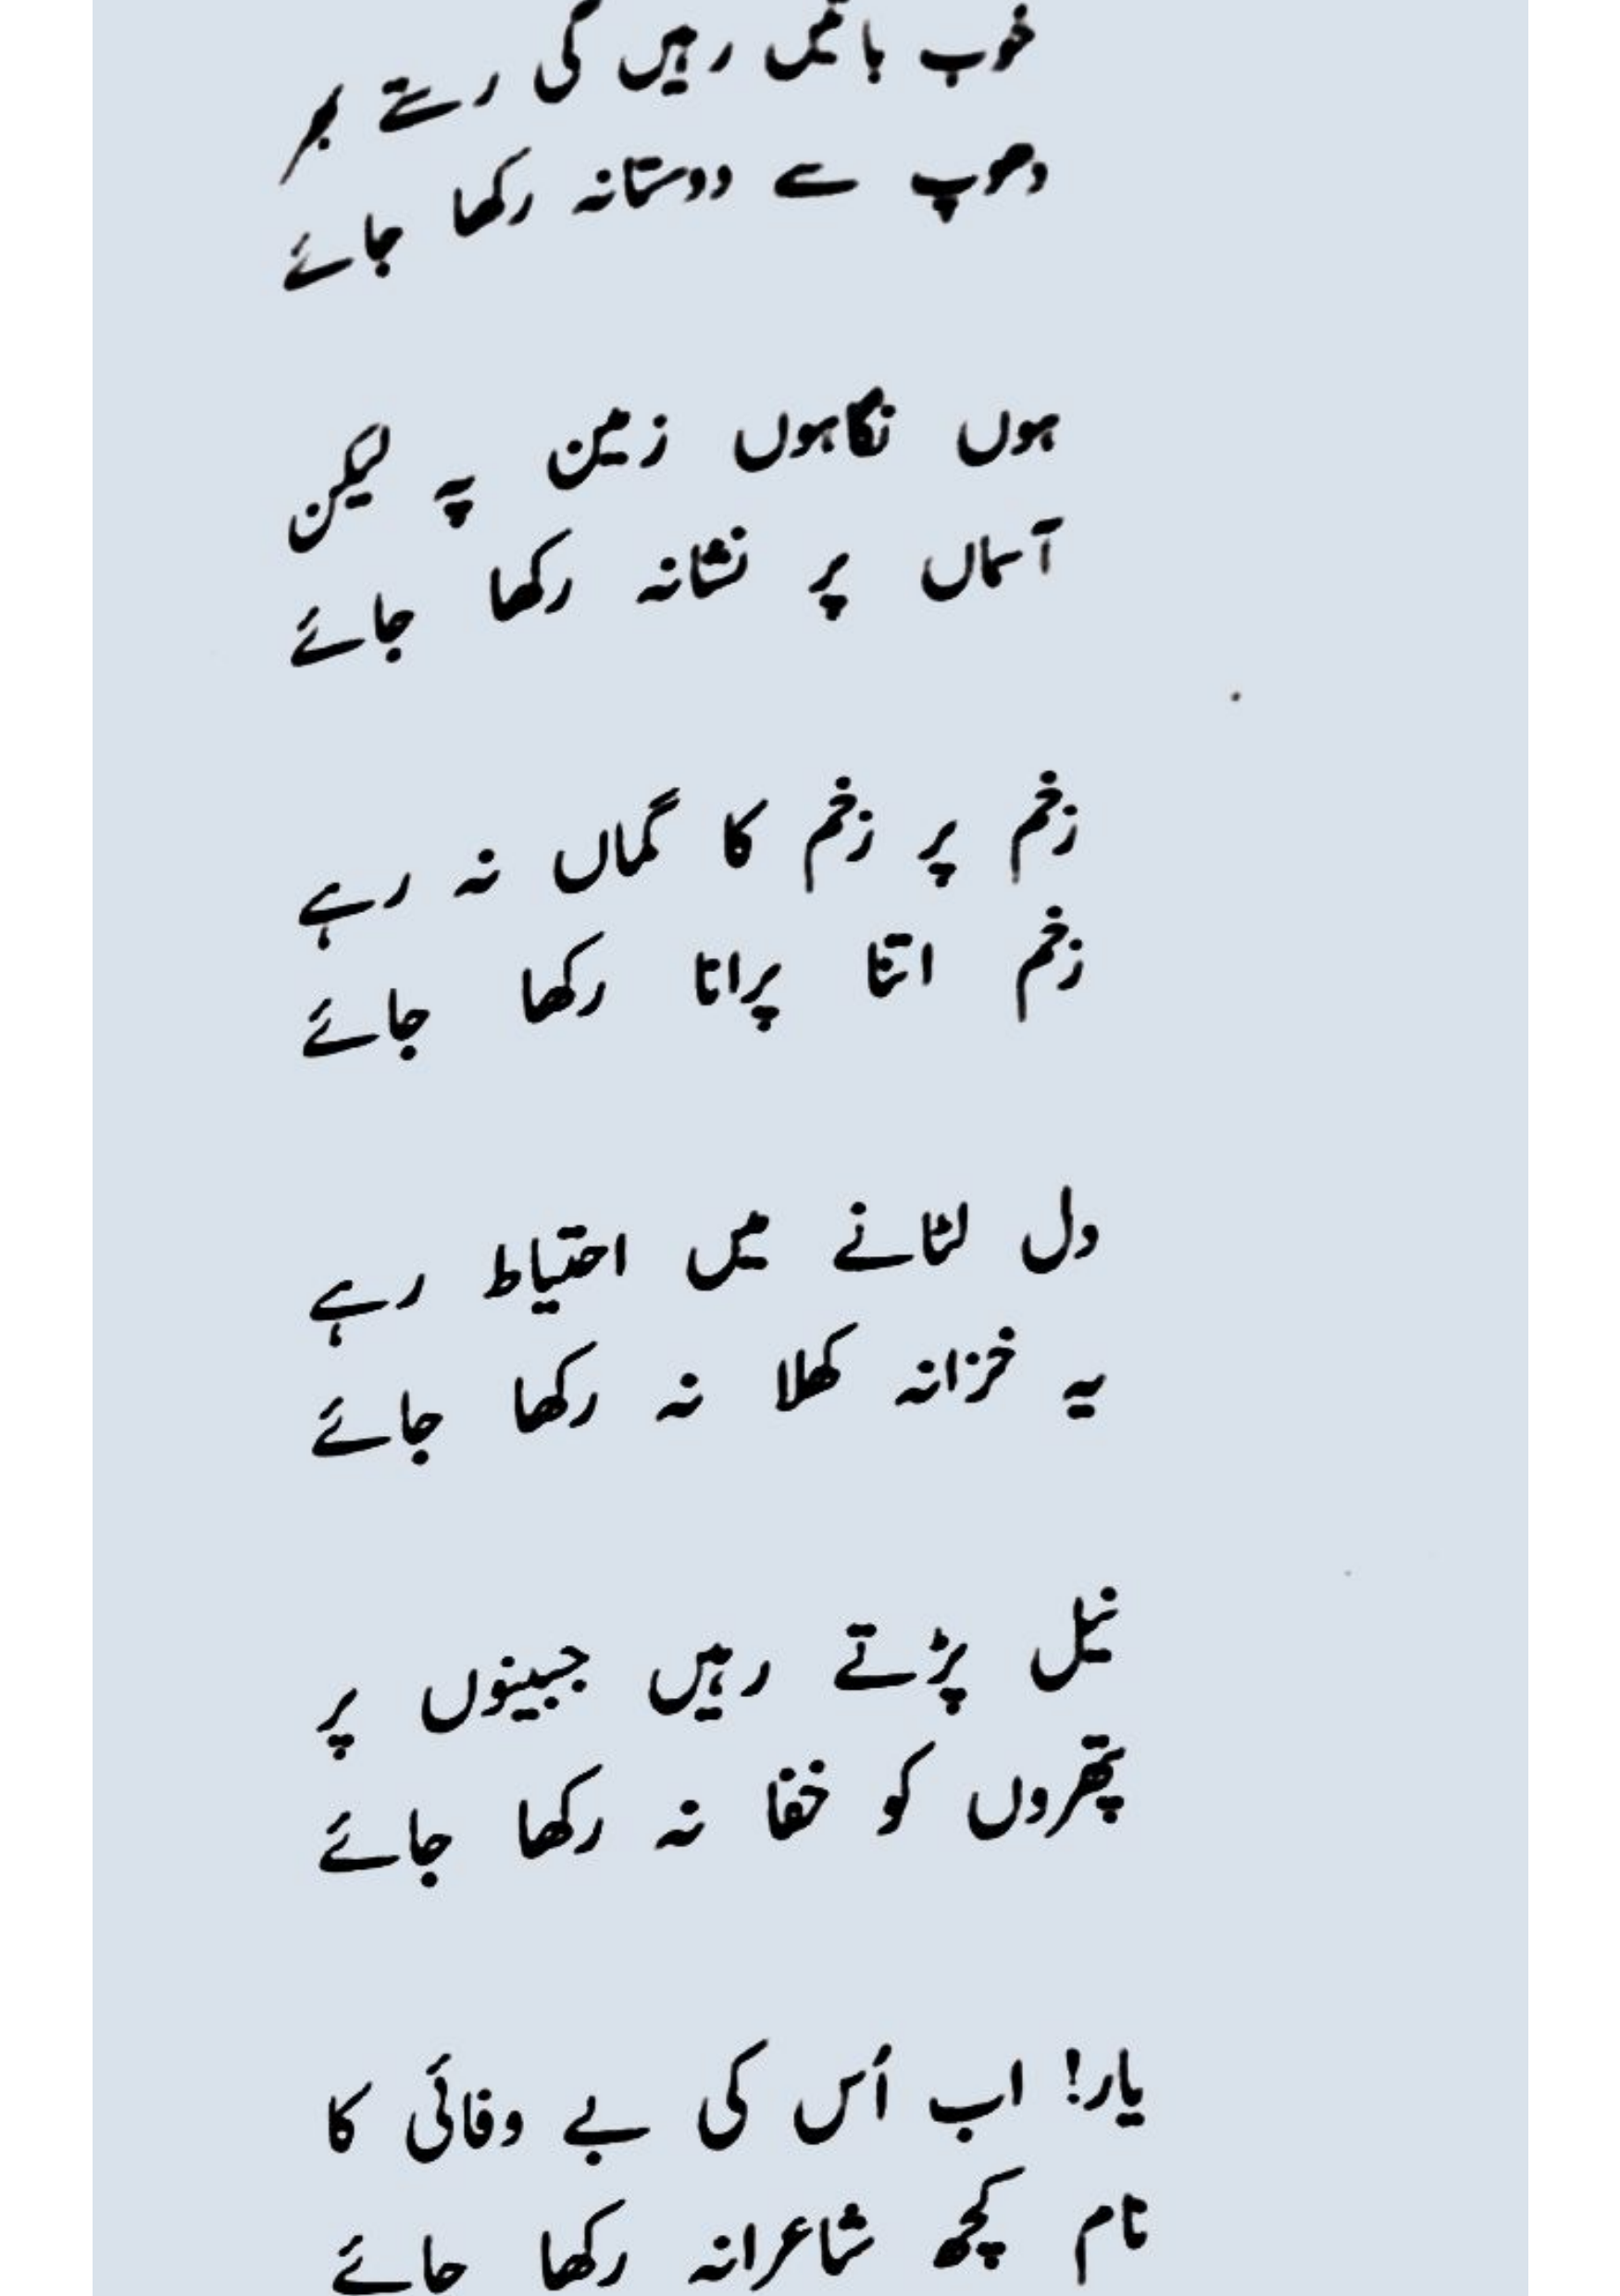 خوب باتیں رہیں گی رستے بھر
دھوپ سے دوستانہ رکھا جائے
ہوں نگاہوں زمین پہ لیکن
آسماں پر نشانہ رکھا جائے
زخم پر زخم کا گماں نہ رہے
زخم اتنا پرانا رکھا جائے
دل لٹانے میں احتیاط رہے
یہ خزانہ کھلا نہ رکھا جائے
نیل پڑتے رہیں جبینوں پر
پتھروں کو خفا نہ رکھا جائے
یار! اب اُس کی بے وفائی کا
نام کچھ شاعرانہ رکھا جائے